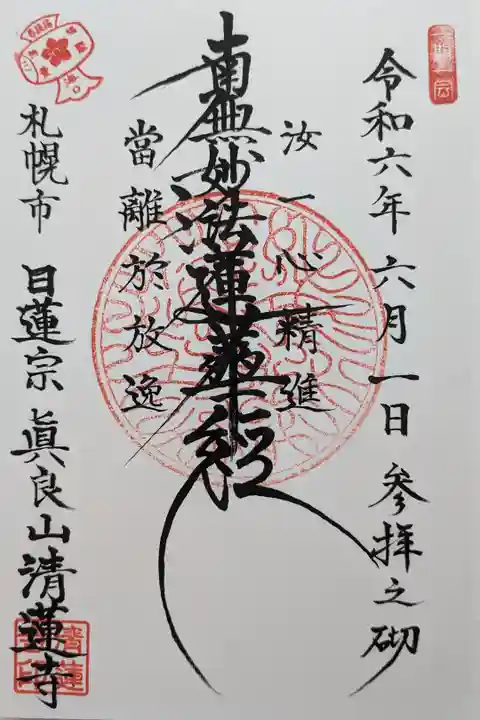 令和六年 六月一日 参拝之砌
汝一心精進
南無妙法蓮華経
當離於放逸
札幌市 日蓮宗 眞良山 清蓮寺